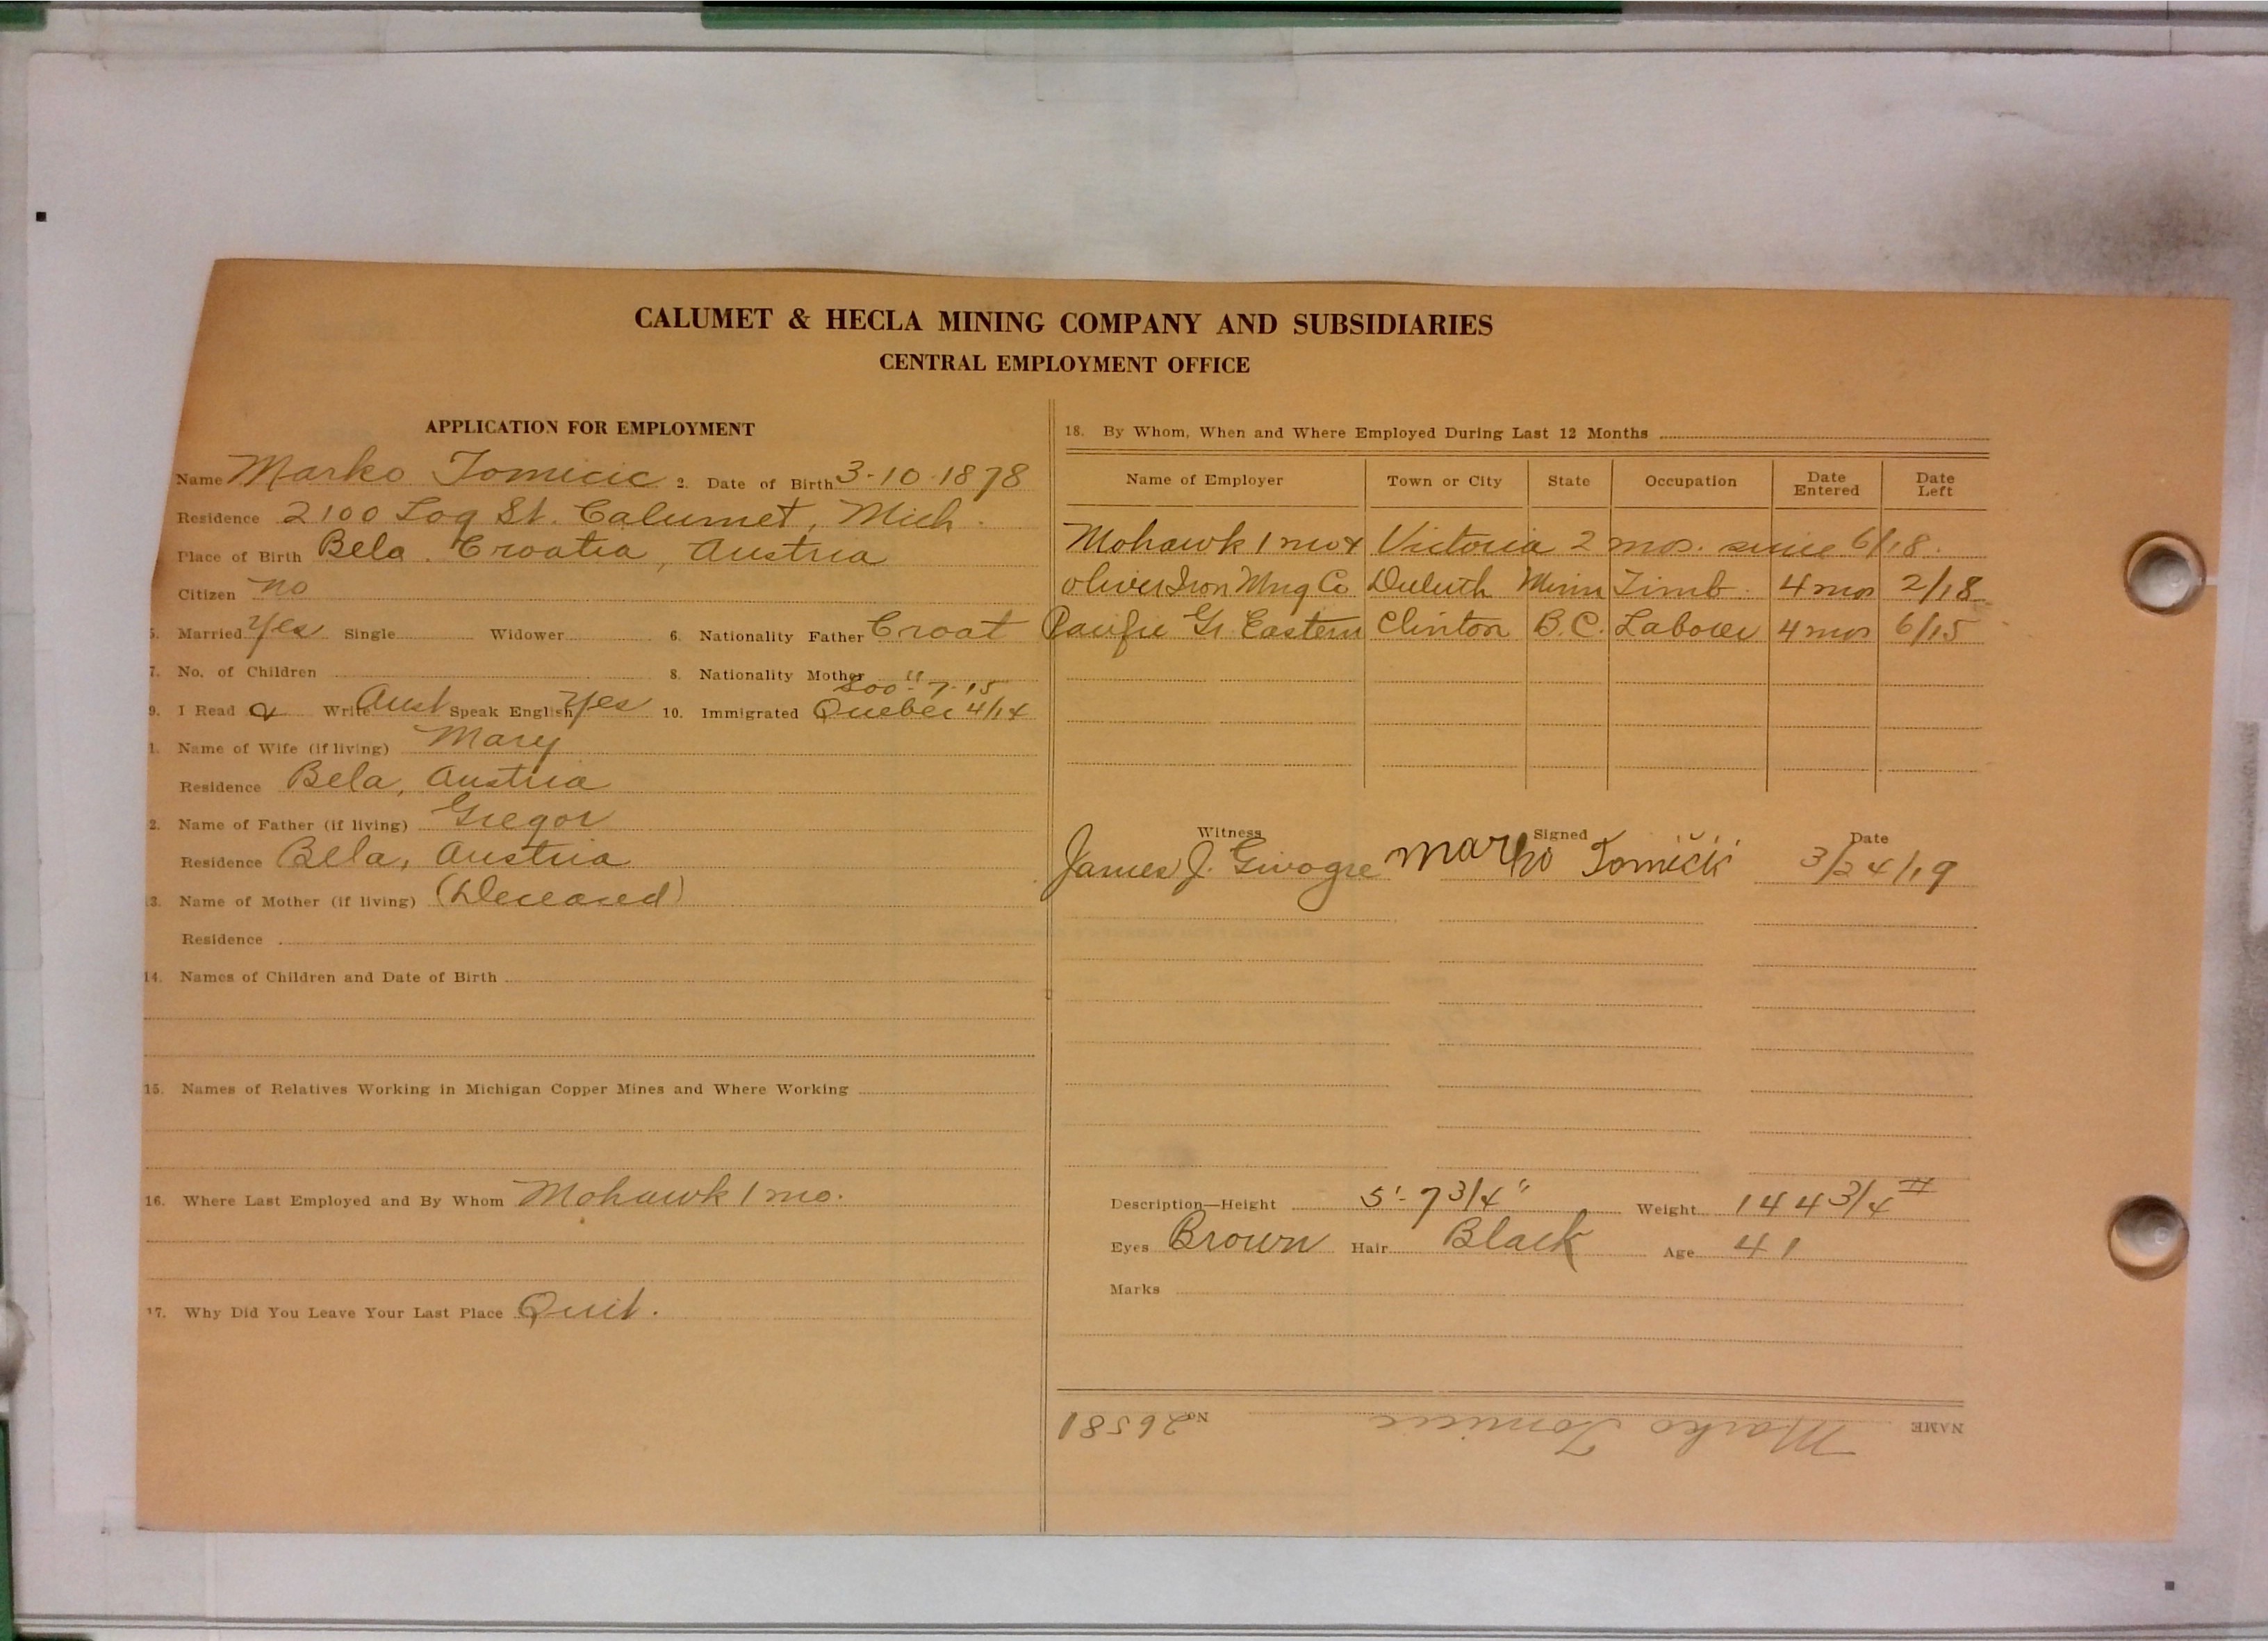 CALUMET & HECLA MINING COMPANY AND SUBSIDIARIES
CENTRAL EMPLOYMENT OFFICE
APPLICATION FOR EMPLOYMENT
Name Marko Tomicic 2. Date of Birth 3-10-1878
Residence 2100 Log St. Calumet, Mich.
Place of Birth Bela. Croatia, Austria
Citizen no
5. Married Yes Single Widower 6. Nationality Father Croat
7. No. of Children 8. Nationality Mother "
Soo - 7-15
9. I Read & Write Aust Speak English Yes 10. Immigrated Quebec 4/14
1. Name of Wife (if living) Mary
Residence Bela, Austria
2. Name of Father (if living) Gregor
Residence Bela, Austria
13. Name of Mother (if living) (Deceased)
Residence
14. Names of Children and Date of Birth
15. Names of Relatives Working in Michigan Copper Mines and Where Working
16. Where Last Employed and By Whom Mohawk 1 mo.
17. Why Did You Leave Your Last Place Quit.
18. By Whom, When and Where Employed During Last 12 Months
Name of Employer Town or City State Occupation Date Entered Date Left
Mohawk 1 mo & Victoria 2 mos. since 6/18.
Oliver Iron Mng Co Duluth Minn Timb. 4 mos 2/18
Pacific Gr Eastern Clinton B.C. Laborer 4 mos 6/15
Witness Signed Date
James J. Marko Tomičić 3/24/19
Description—Height 5'-7 3/4" Weight 144 3/4 #
Eyes Brown Hair Black Age 41
Marks
NAME Marko Tomicic No. 26581